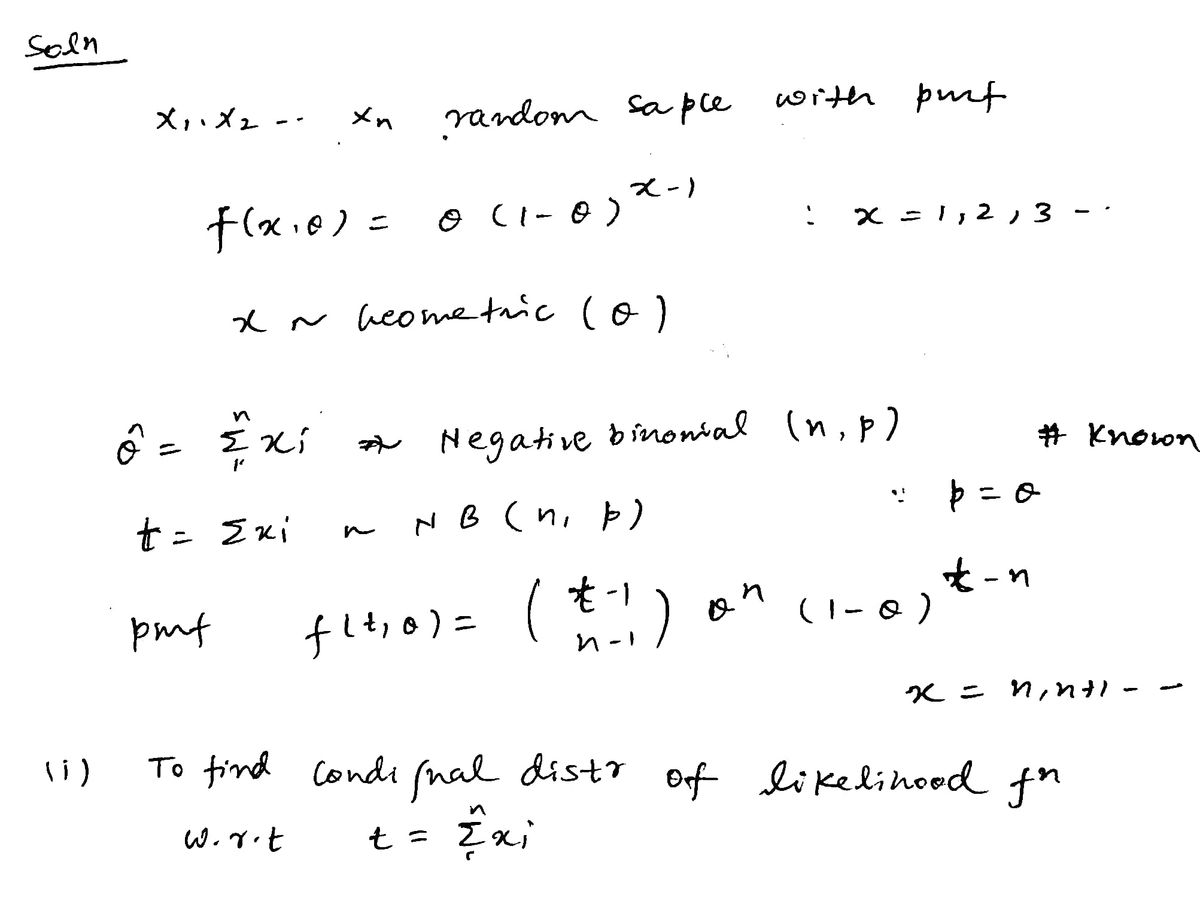 Soln
x₁, x₂ -- xₙ random saple with pmf
f(x,θ) = θ (1-θ)^{x-1} : x = 1, 2, 3 --
x ~ Geometric (θ)
θ̂ = Σ₁ⁿ xi ~ Negative binomial (n, p) # Known
t = Σxi ~ NB (n, p) ∵ p = θ
pmf f(t, θ) = (t-1 n-1) θⁿ (1-θ)^{t-n}
x = n, n+1 --
(i) To find distr of likelihood fn
w.r.t t = Σ₁ⁿ xi